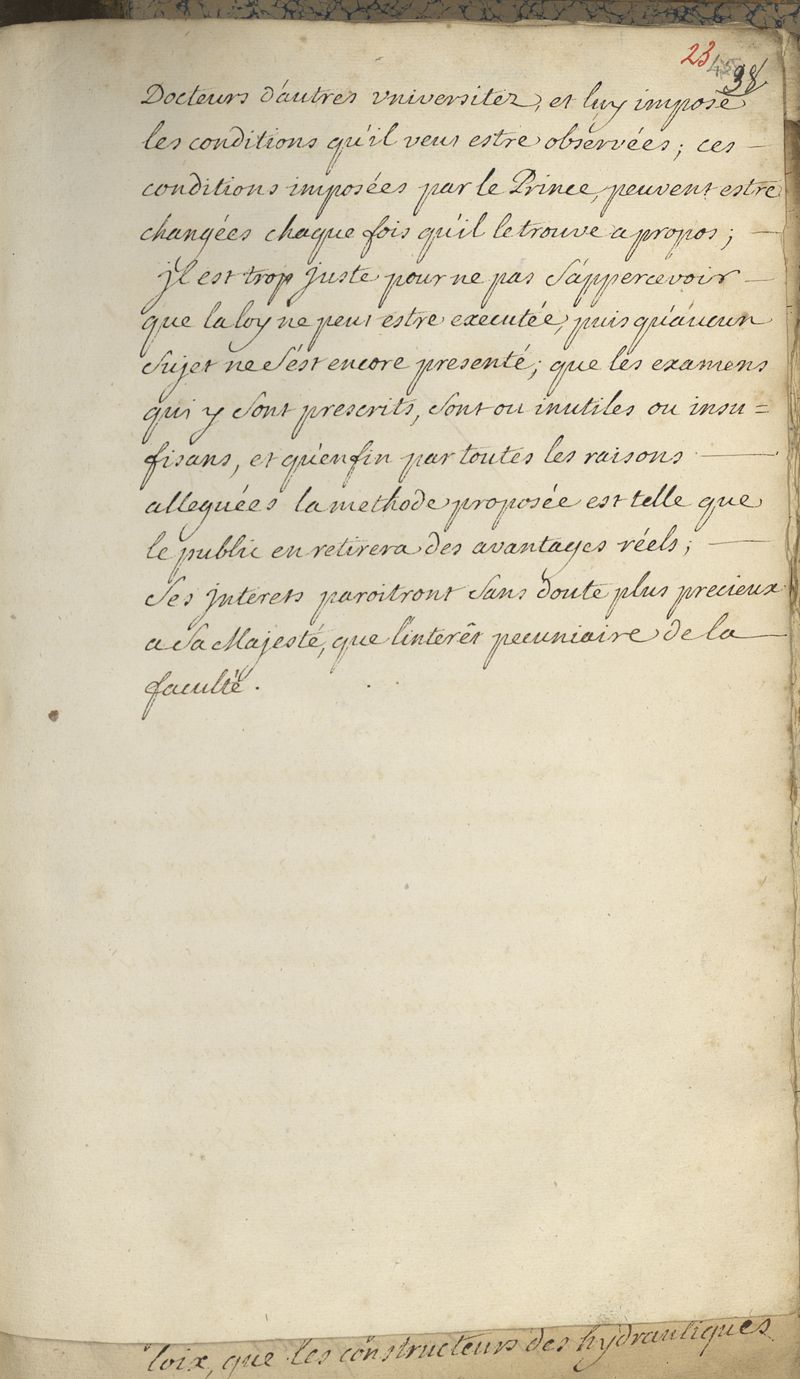 23 45 38
Docteurs d'autres vniversitez, et luy impose
les conditions qu'il veut estre observées; ces —
conditions imposées par le Prince, peuvent estre
changées chaque fois qu'il le trouve a propos; —
jl est trop juste pour ne pas s'appercevoir —
que la loy ne peut estre executée, puis qu'aucun
sujet ne s'est encore presenté; que les examens
qui y sont prescrits, sont ou inutiles ou insu=
fisans, et qu'enfin par toutes les raisons —
alleguées la methode proposée est telle que
le public en retirera des avantages réels; —
ses jnterets paroitront sans doute plus precieux
a sa Majesté, que l'interêt pecuniaire de la —
faculté.
loix, que les constructeurs des hydrauliques